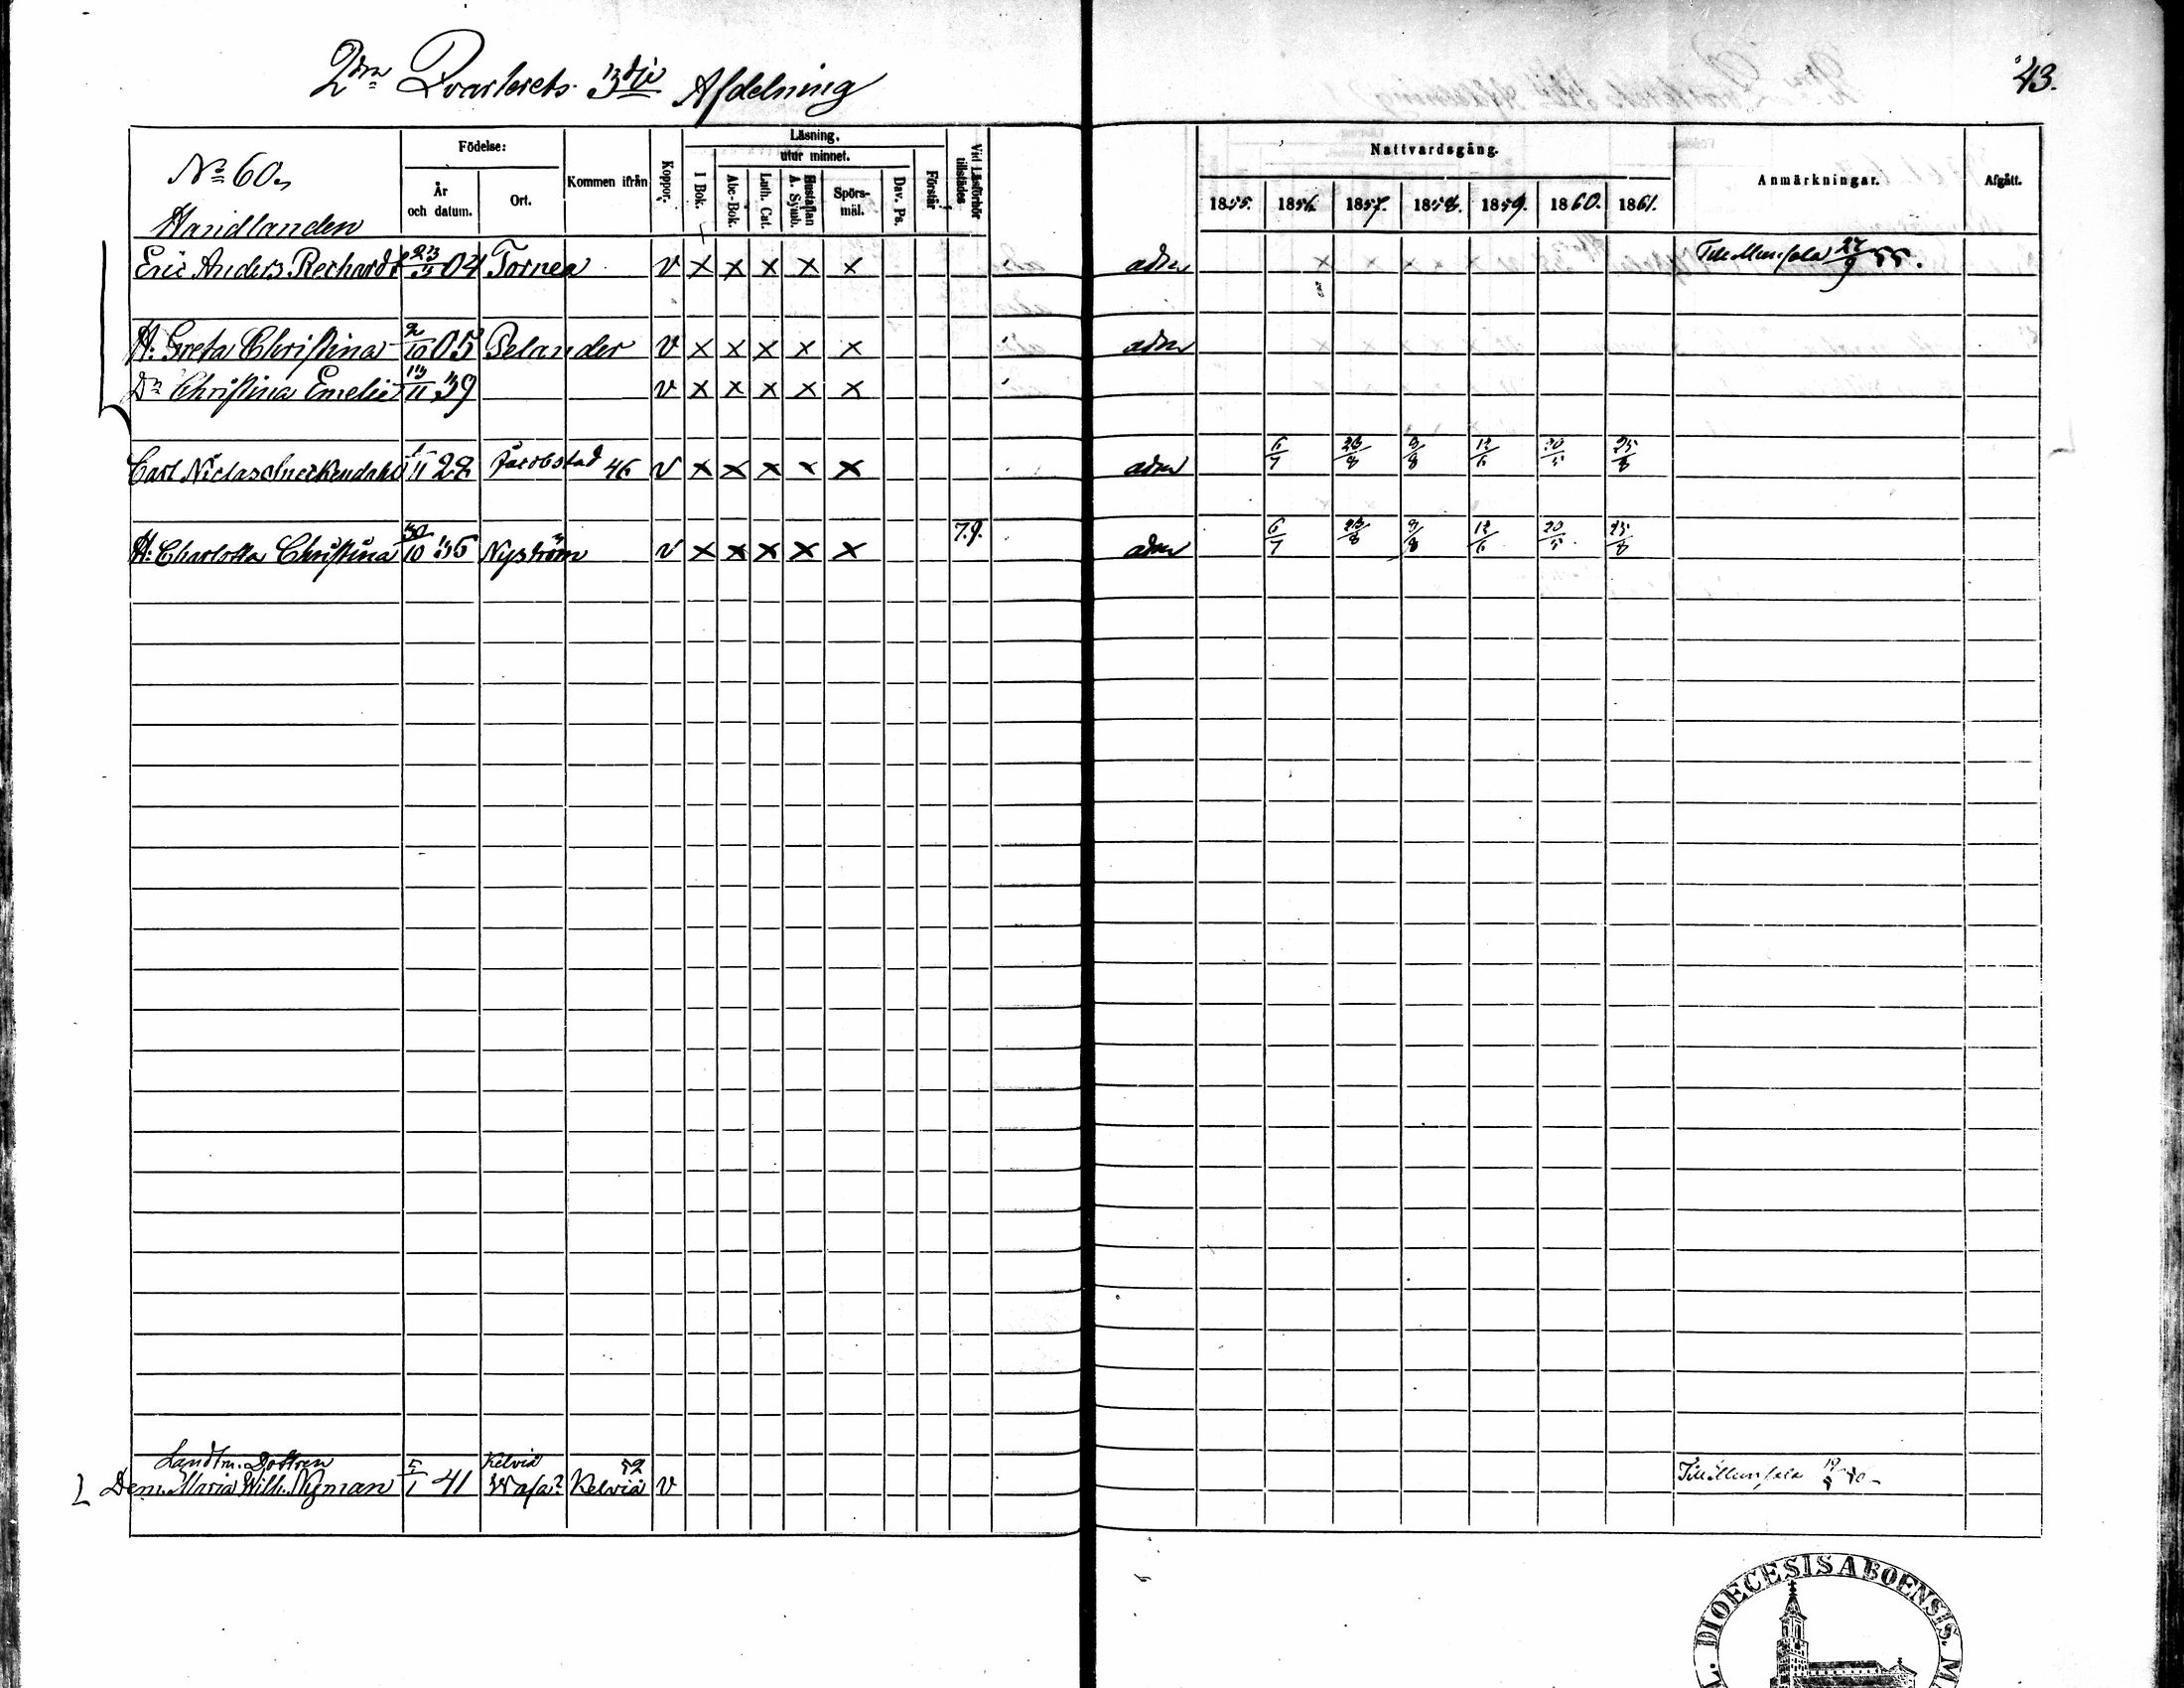 2dra Qvarterets 3dje Afdelning
43.
No 60.
Handlanden
Födelse:
År och datum.
Ort.
Kommen ifrån
Koppor.
Läsning.
I Bok.
utur minnet.
Abc-Bok.
Luth. Cat.
Hustaflan A. Symb.
Spörsmål.
Dav. Ps.
Förstår
Vid Läsförhör tillstädes
Nattvardsgång.
1855. 1856. 1857. 1858. 1859. 1860. 1861.
Anmärkningar.
Afgått.
Eric Anders Rechardt 23/5 04 Torneå v x x x x x adm Till Munsala 27/9 55.
H: Greta Christina 2/10 05 Pelander v x x x x x adm
Dr Christina Emelie 13/11 39 v x x x x x
Carl Niclas Sneckendahl 1/11 28 Jacobstad 46 v x x x x x adm 6/7 23/8 9/8 12/6 20/5 25/8
H: Charlotta Christina 30/10 35 Nyström v x x x x x 7.9. adm 6/7 23/8 9/8 12/6 20/5 25/8
Landtm. Dottren Kelviå 52
Dem. Maria Wilh. Nyman 5/1 41 Wasa? Kelviå v Till Munsala
DIOECESIS ABOENSIS.